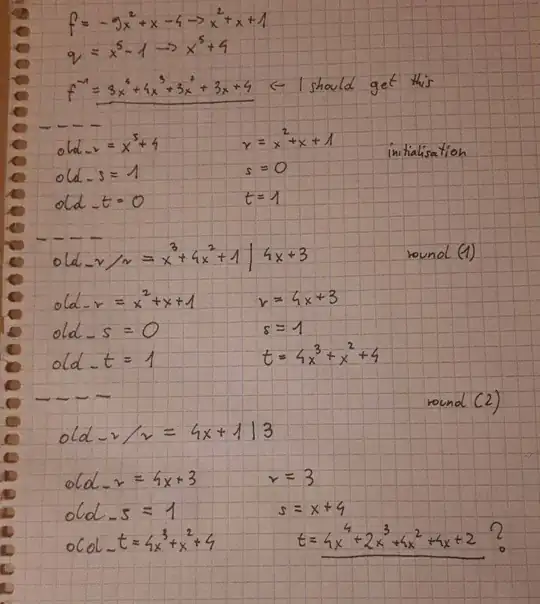 f = -9x²+x-4 → x²+x+1
q = x⁵-1 → x⁵+4
f⁻¹ = 3x⁴+4x³+3x²+3x+4 ← I should get this
----
old_r = x⁵+4 r = x²+x+1 initialisation
old_s = 1 s = 0
old_t = 0 t = 1
----
old_r/r = x³+4x²+1 | 4x+3 round (1)
old_r = x²+x+1 r = 4x+3
old_s = 0 s = 1
old_t = 1 t = 4x³+x²+4
---- round (2)
old_r/r = 4x+1 | 3
old_r = 4x+3 r = 3
old_s = 1 s = x+4
old_t = 4x³+x²+4 t = 4x⁴+2x³+4x²+4x+2 ?